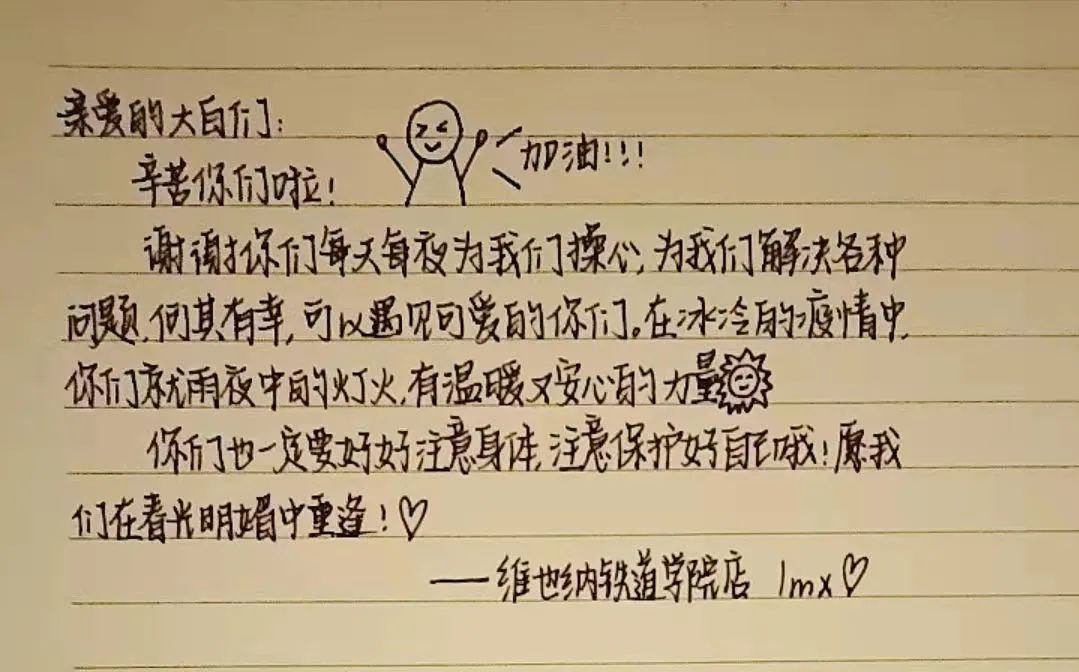 亲爱的大白们:
辛苦你们啦!
加油!!!
谢谢你们每天每夜为我们操心,为我们解决各种
问题,何其有幸,可以遇见可爱的你们。在冰冷的疫情中,
你们就雨夜中的灯火,有温暖又安心的力量
你们也一定要好好注意身体,注意保护好自己哦!愿我
们在春光明媚中重逢!♡
——维也纳铁道学院店 lmx♡